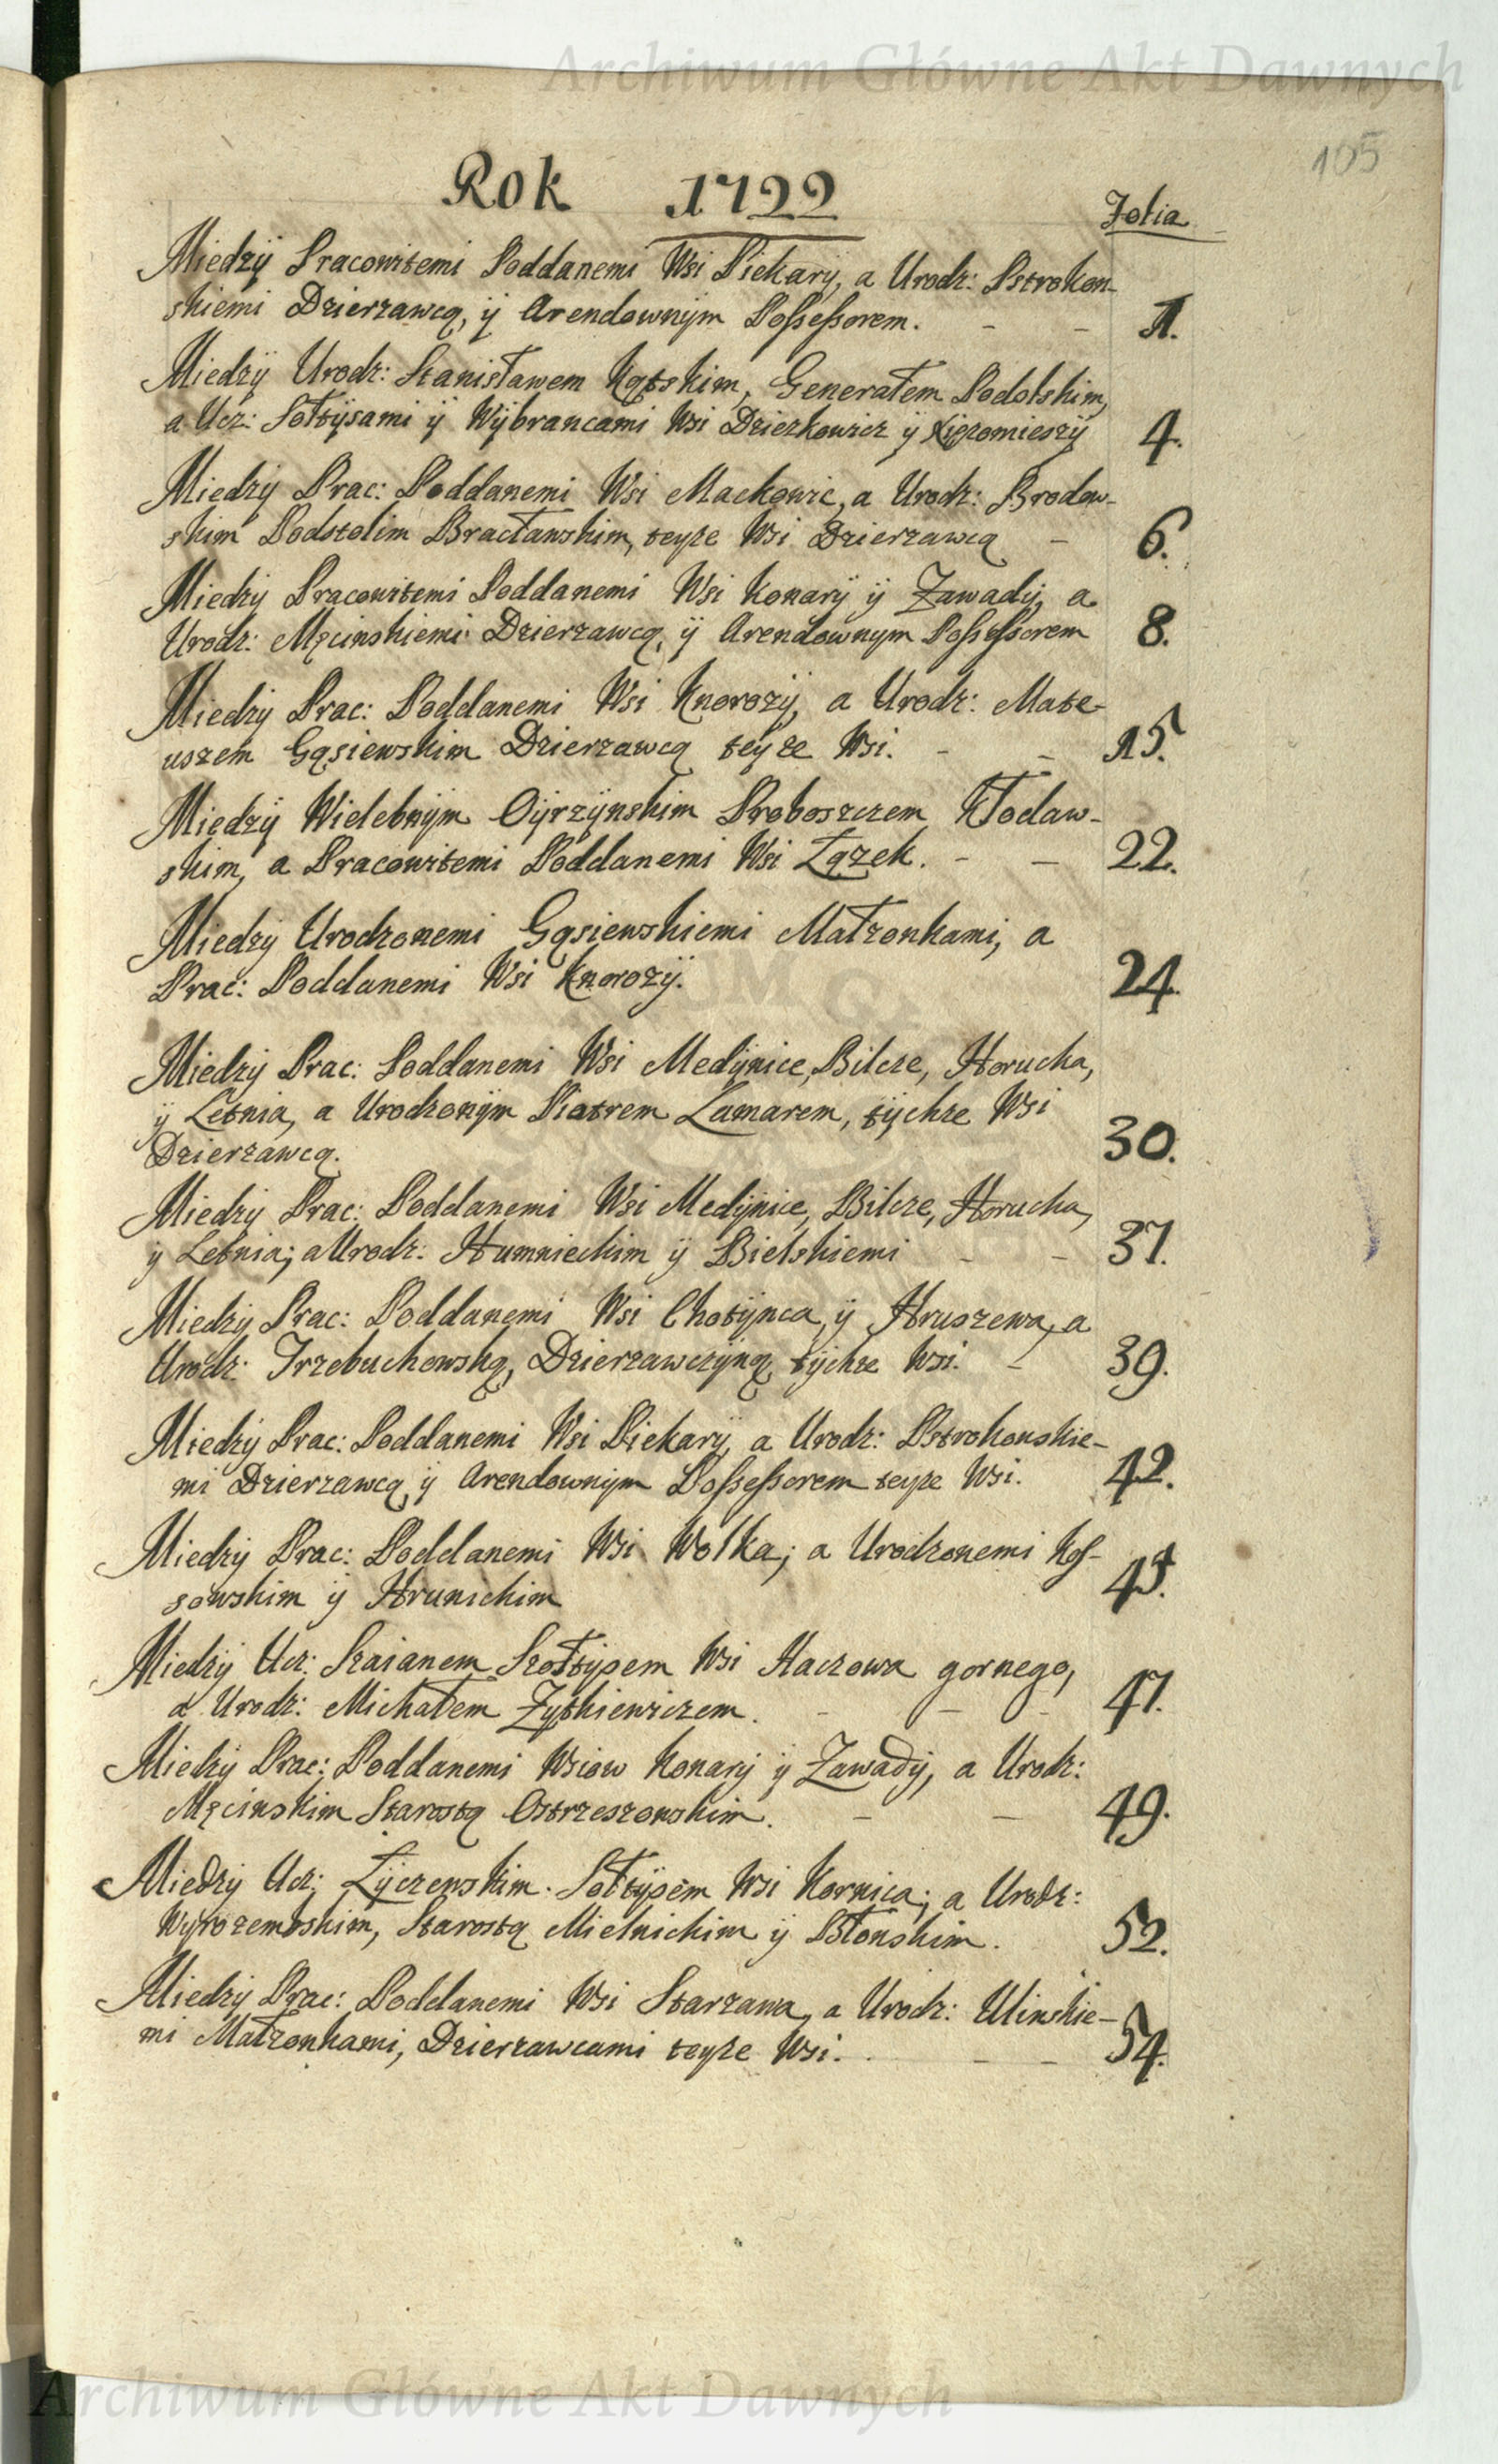 Archiwum Główne Akt Dawnych
105
Rok 1722
Folia
Miedzÿ Pracowitemi Poddanemi Wsi Piekarÿ, a Urodz: Pstrokon-
skiemi Dzierzawcą, ÿ Arendownÿm Possessorem. - - 1.
Miedzÿ Urodz: Stanisławem Kątskim, Generałem Podolskim,
a Ucz: Sołtÿsami ÿ Wÿbrancami Wsi Dzierkowicz ÿ Xięzomieszÿ 4.
Miedzÿ Prac: Poddanemi Wsi Mackowic, a Urodz: Brodow-
skim Podstolim Bracławskim, teyże Wsi Dzierzawcą - 6.
Miedzÿ Pracowitemi Poddanemi Wsi Konarÿ ÿ Zawadÿ, a
Urodz: Męcinskiemi Dzierzawcą, ÿ Arendownym Possessorem 8.
Miedzÿ Prac: Poddanemi Wsi Knorozÿ, a Urodz: Mate-
uszem Gąsiewskim Dzierzawcą teÿże Wsi. - - 15.
Miedzÿ Wielebnÿm Oÿrzÿnskim Proboszczem Kłodaw-
skim, a Pracowitemi Poddanemi Wsi Łązek. - - 22.
Miedzÿ Urodzonemi Gąsiewskiemi Małzonkami, a
Prac: Poddanemi Wsi Knorozÿ. 24.
Miedzÿ Prac: Poddanemi Wsi Medÿnice, Bilcze, Horucha,
ÿ Letnia, a Urodzonÿm Piotrem Lamarem, tÿchże Wsi
Dzierzawcą. 30.
Miedzÿ Prac: Poddanemi Wsi Medÿnice, Bilcze, Horucha,
ÿ Letnia; a Urodz: Humnieckim ÿ Bielskiemi - - 37.
Miedzÿ Prac: Poddanemi Wsi Chotÿnca, ÿ Hruszewa, a
Urodz: Trzebuchowską, Dzierzawczÿną tÿchże Wsi. - 39.
Miedzÿ Prac: Poddanemi Wsi Piekarÿ, a Urodz: Pstrokonskie-
mi Dzierzawcą, ÿ Arendownÿm Possessorem teyże Wsi. 42.
Miedzÿ Prac: Poddanemi Wsi Wolka; a Urodzonemi Kos-
sowskim ÿ Hrunickim 45.
Miedzÿ Ucz: Szaianem Szołtÿsem Wsi Haczowa gornego,
a Urodz: Michałem Zytkiewiczem. - - - 47.
Miedzÿ Prac: Poddanemi Wsiow Konarÿ ÿ Zawadÿ, a Urodz:
Męcinskim Starostą Ostrzeszowskim. - - 49.
Miedzÿ Ucz: Łÿczewskim. Sołtÿsem Wsi Kornica; a Urodz:
Wyrozembskim, Starostą Mielnickim ÿ Błonskim. 52.
Miedzÿ Prac: Poddanemi Wsi Starzawa, a Urodz: Ulinskie-
mi Małzonkami, Dzierzawcami teyże Wsi. - - 54.
Archiwum Główne Akt Dawnych